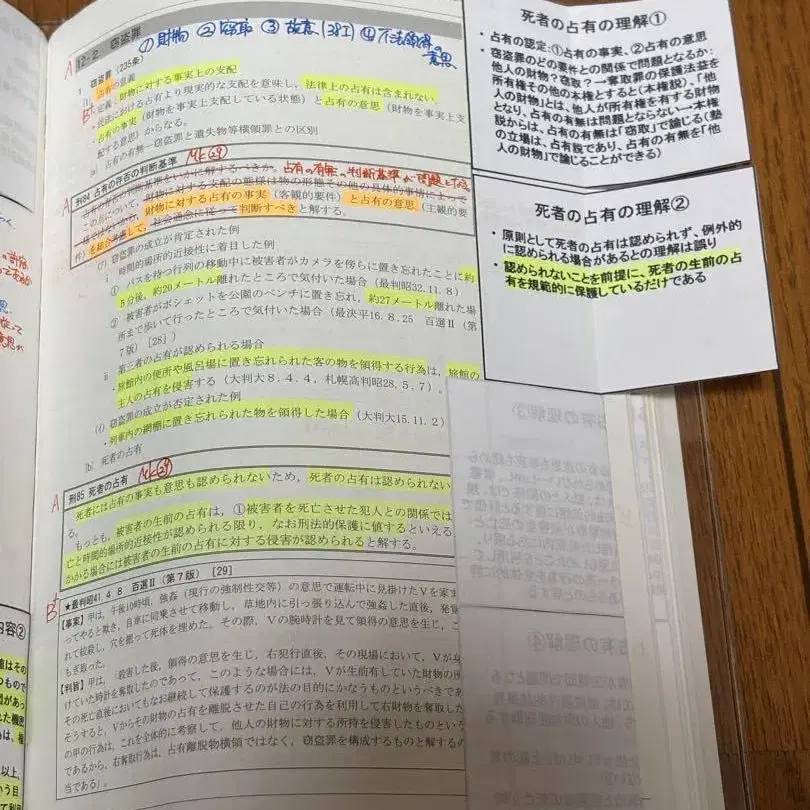 A 12-2 窃盗罪 ①財物 ②窃取 ③故意(38Ⅰ) ④不法領得の意思
1 窃盗罪(235条)
(1) 占有の意義
・定義:財物に対する事実上の支配
B+ ・民法における占有より現実的な支配を意味し,法律上の占有は含まれない。
・占有の事実(財物を事実上支配している状態)と占有の意思(財物を事実上支
配する意思)からなる。
(a) 占有の有無―窃盗罪と遺失物等横領罪との区別
Mk(29) 占有の有無の判断基準が問題となる。
A 刑84 占有の存否の判断基準
占有の有無の判断基準をいかに解するべきか。
この点について,財物に対する支配の態様は物の形態その他の具体的事情によって
財物に対する占有の事実(客観的要件)と占有の意思(主観的要
件)を総合考慮して,社会通念に従って判断すべきと解する。
(ア) 窃盗罪の成立が肯定された例
ⅰ 時間的場所的近接性に着目した例
① バスを待つ行列の移動中に被害者がカメラを傍らに置き忘れたことに約
5分後,約20メートル離れたところで気付いた場合(最判昭32.11.8)
② 被害者がポシェットを公園のベンチに置き忘れ,約27メートル離れた場
所まで歩いて行ったところで気付いた場合(最決平16.8.25 百選Ⅱ(第
7版)[28])
ⅱ 第三者の占有が認められる場合
・旅館内の便所や風呂場に置き忘れられた客の物を領得する行為は,旅館の
主人の占有を侵害する(大判大8.4.4,札幌高判昭28.5.7)。
(イ) 窃盗罪の成立が否定された例
・列車内の網棚に置き忘れられた物を領得した場合(大判大15.11.2)
(b) 死者の占有
Mk(29)
A 刑85 死者の占有
死者には占有の事実も意思も認められないため,死者の占有は認められない
る。
もっとも,被害者の生前の占有は,①被害者を死亡させた犯人との関係では
亡と時間的場所的近接性が認められる限り,なお刑法的保護に値するといえる
かかる場合には被害者の生前の占有に対する侵害が認められると解する。
B+ ★最判昭41.4.8 百選Ⅱ(第7版)[29]
【事実】甲は,午後10時頃,強姦(現行の強制性交等)の意思で運転中に見掛けたVを家ま
ってやると欺き,自車に同乗させて移動し,草地内に引っ張り込んで強姦した直後,発覚
れて絞殺し,穴を掘って死体を埋めた。その際,Vの腕時計を見て領得の意思を生じ,こ
もぎ取った。
【判旨】甲は,「殺害した後,領得の意思を生じ,右犯行直後,その現場において,Vが身
けていた時計を奪取したのであって,このような場合には,Vが生前有していた財物の所
その死亡直後においてもなお継続して保護するのが法の目的にかなうものというべきであ
そうすると,Vからその財物の占有を離脱させた自己の行為を利用して右財物を奪取した
の甲の行為は,これを全体的に考察して,他人の財物に対する所持を侵害したものという
であるから,右奪取行為は,占有離脱物横領ではなく,窃盗罪を構成するものと解するの
当である」。
死者の占有の理解①
・占有の認定:①占有の事実、②占有の意思
・窃盗罪のどの要件との関係で問題となるか:
他人の財物?窃取?→奪取罪の保護法益を
所有権その他の本権とすると(本権説)、「他
人の財物」とは、他人が所有権を有する財物
となり、占有の有無は問題とならない→本権
説からは、占有の有無は「窃取」で論じる(塾
の立場は、占有説であり、占有の有無を「他
人の財物」で論じることができる)
死者の占有の理解②
・原則として死者の占有は認められず、例外的
に認められる場合があるとの理解は誤り
・認められないことを前提に、死者の生前の占
有を規範的に保護しているだけである
内容②